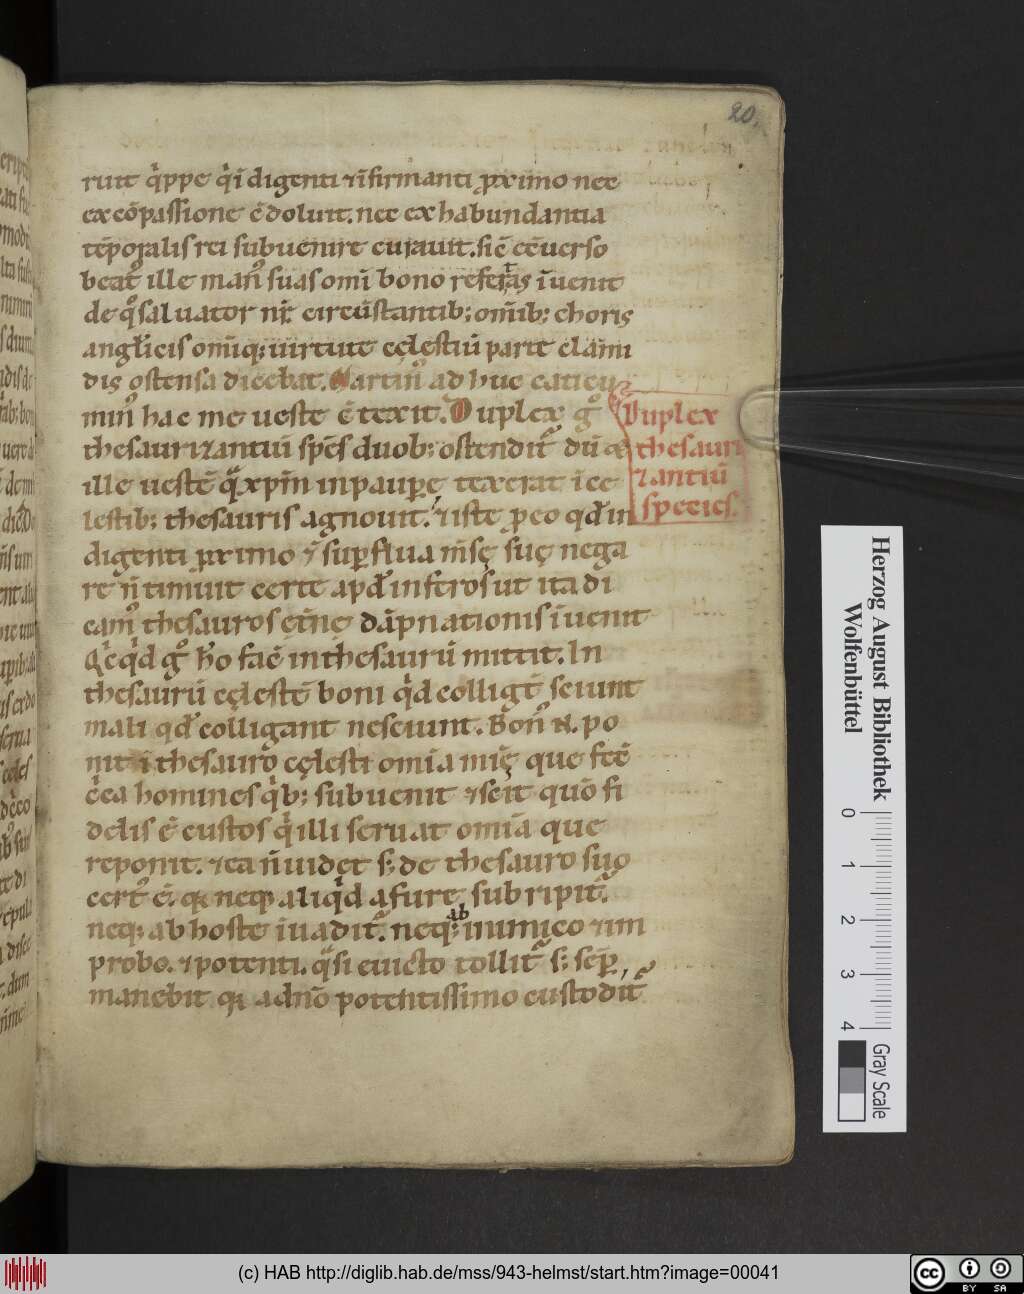 20.
ruit q̇ppe q̇ īdigenti ⁊ īfirmanti ꝓximo nec
ex cōpassione ↄ̄doluit. nec ex habundantia
tēporalis rei subuenire curauit. sic̄ ec̄uerso
beat᷒ ille man᷒ suas omī bono refertas īuenit
de q̊ saluator nr̄ circūstantib; om̄ib; choris
anglicis om̄iq; uirtute cęlestiū parte clami
dis ostensa dicebat. Martin᷒ adhuc caticu
min᷒ hac me ueste ↄ̄texit. Duplex g̊
thesaurizantiū spēs duob; ostendit᷑ dū &
ille uestē q̄ xp̄m in paupe texerat i ce
lestib; thesauris agnouit. ⁊ iste ꝓ eo qd̄ in
digenti ꝓximo ⁊ suꝑflua m̄sę suę nega
re n̄ timuit certe apd̄ inferos ut ita di
cam᷒ thesauros et̄nę dāpnationis īuenit
Qicq̇d g̊ h̊o fac̄ in thesaurū mittit. In
thesaurū cęlestē boni q̇d colligt̄ sciunt
mali qd̄ colligant nesciunt. Bon᷒ n̄. po
nit ī thesauro cęlesti omīa mīę que fcē
c̄ca homines q̇b; subuenit ⁊ scit quō fi
delis ē custos q̇ illi seruat omīa que
reponit. ⁊ ea n̄ uidet s; de thesauro suo
cert᷒ ē. qꝛ neqꝫ aliq̇d a fure subripit᷑.
neq; ab hoste īuadit᷑. neq; ab inimico ⁊ im
probo. ⁊ potenti. q̄si euicto tollit᷑ s; sēꝑ
manebit qꝛ a dn̄o potentissimo custodit᷑
Duplex
thesauri
zantiū
species.
Herzog August Bibliothek
Wolfenbüttel
0 1 2 3 4
Gray Scale
(c) HAB http://diglib.hab.de/mss/943-helmst/start.htm?image=00041
cc BY SA